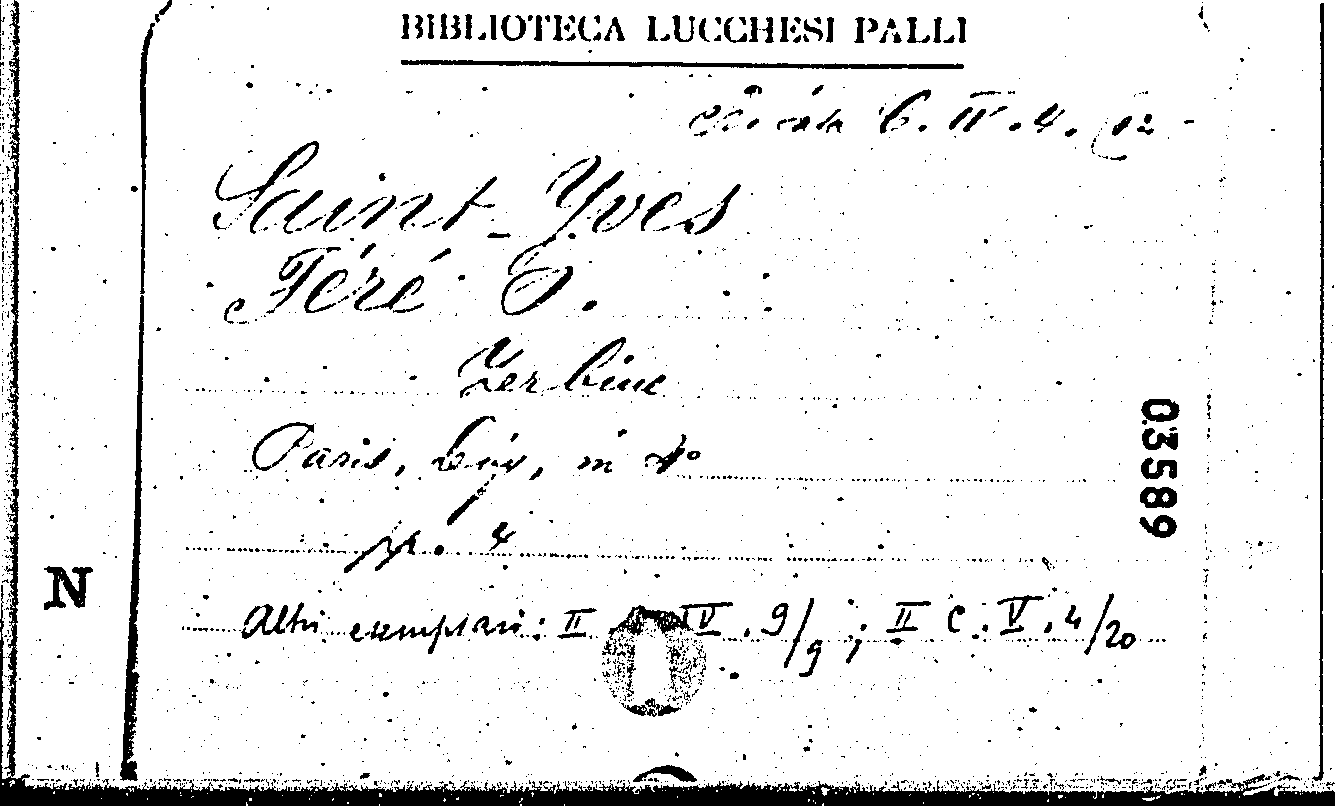 BIBLIOTECA LUCCHESI PALLI
6. IV. 4. (12
Saint-Yves
Féré O.
Zerbine
Paris, Lévy, in 4°
pp. 4
03589
N
Altri esemplari: II IV . 9/9 ; II C. V. 4/20